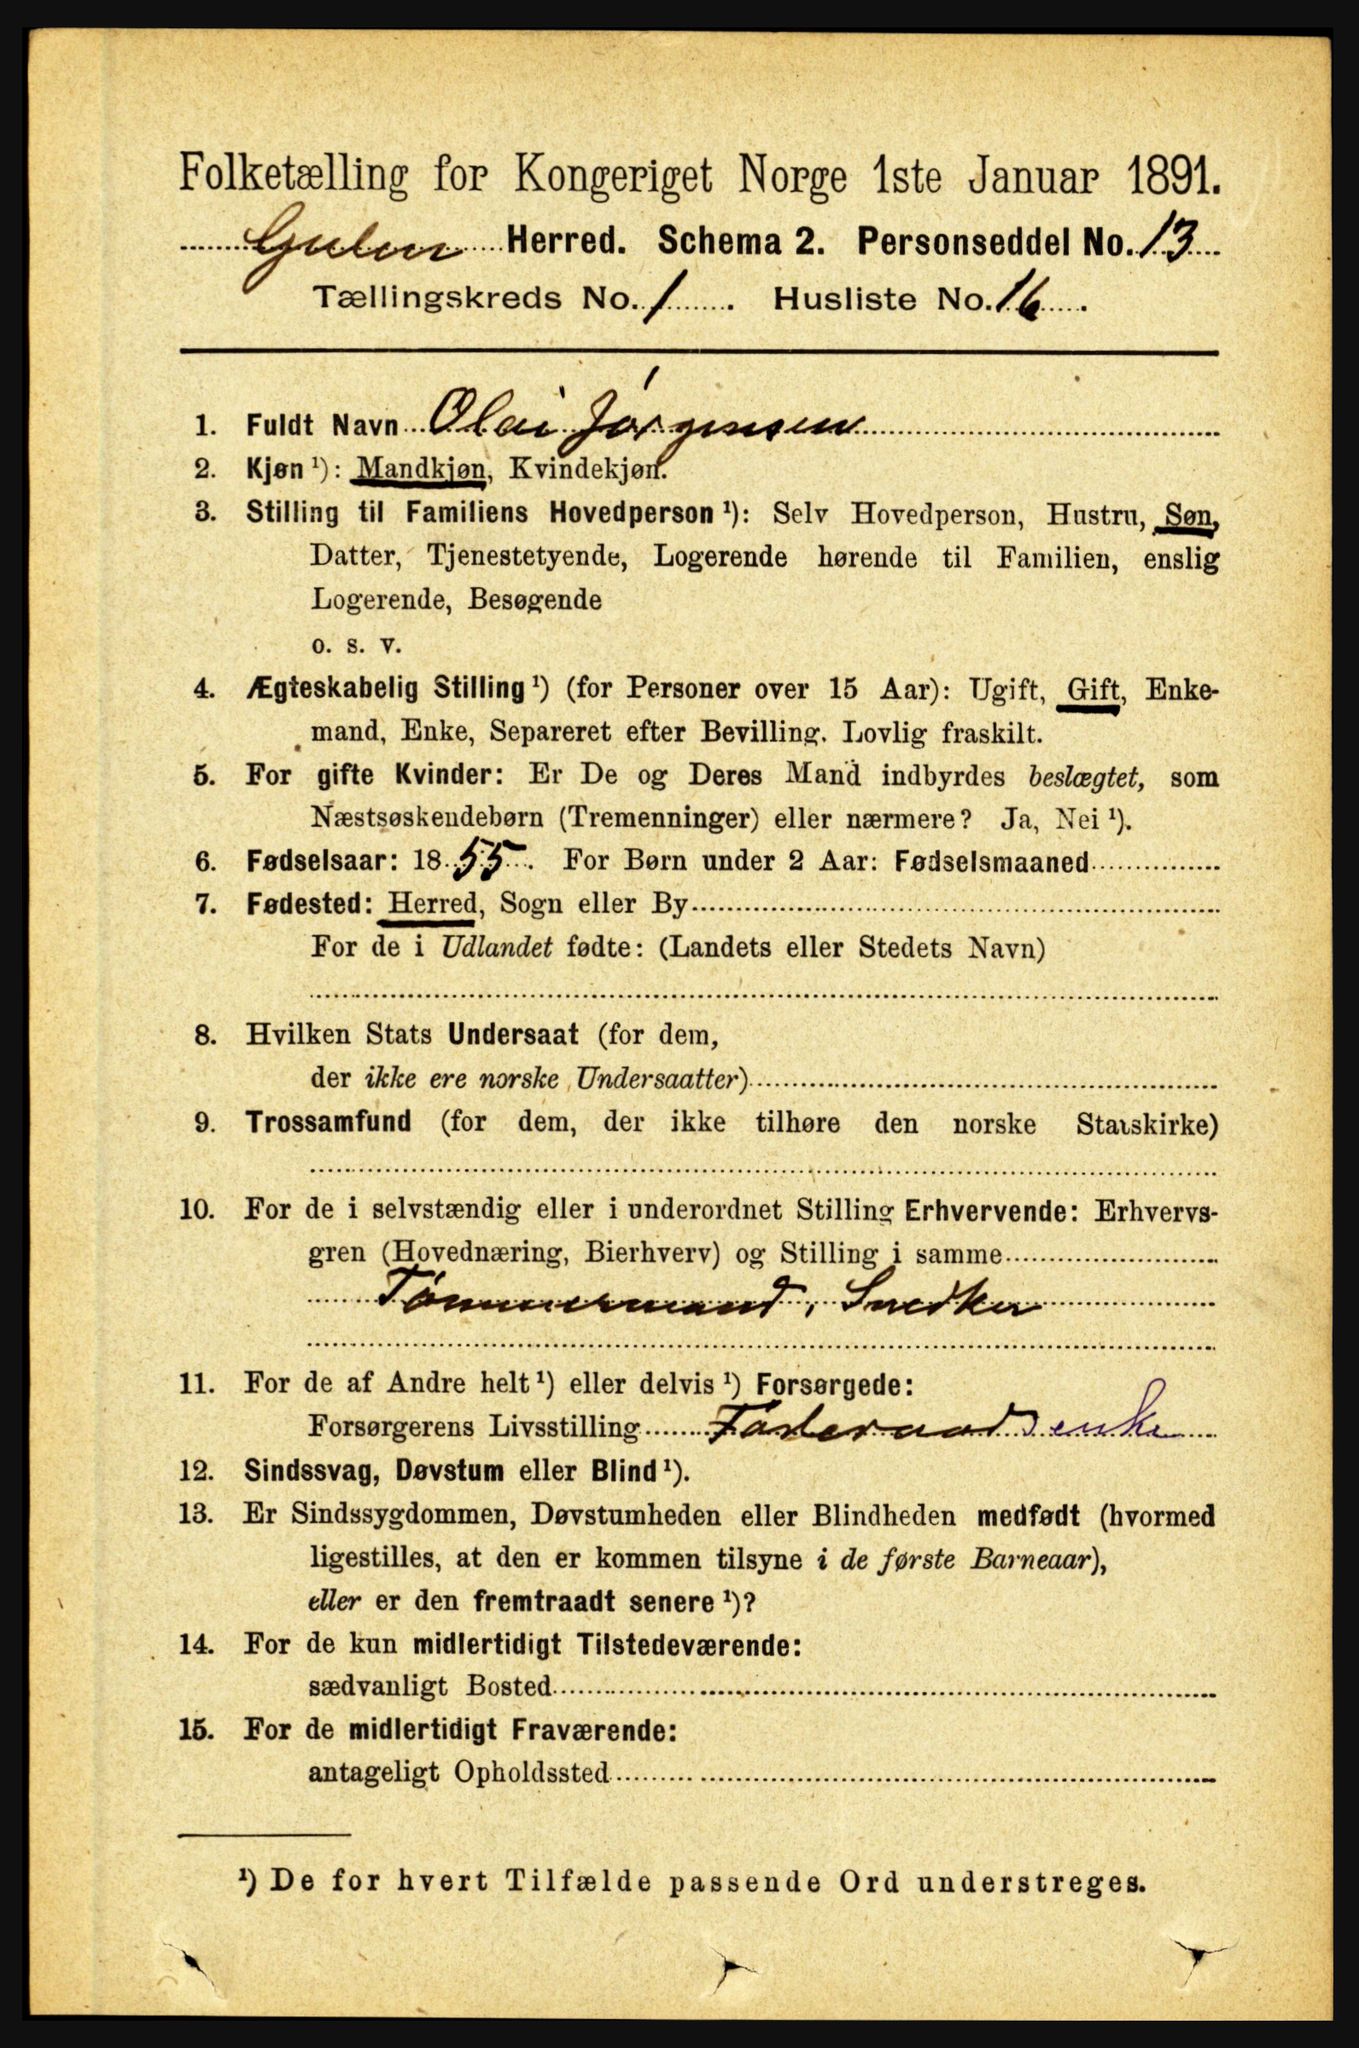 Folketælling for Kongeriget Norge 1ste Januar 1891.
Gulen Herred. Schema 2. Personseddel No. 13
Tællingskreds No. 1. Husliste No. 16.
1. Fuldt Navn Olai Jørgensen
2. Kjøn ¹): Mandkjøn, Kvindekjøn.
3. Stilling til Familiens Hovedperson ¹): Selv Hovedperson, Hustru, Søn,
Datter, Tjenestetyende, Logerende hørende til Familien, enslig
Logerende, Besøgende
o. s. v.
4. Ægteskabelig Stilling ¹) (for Personer over 15 Aar): Ugift, Gift, Enke-
mand, Enke, Separeret efter Bevilling. Lovlig fraskilt.
5. For gifte Kvinder: Er De og Deres Mand indbyrdes beslægtet, som
Næstsøskendebørn (Tremenninger) eller nærmere? Ja, Nei ¹).
6. Fødselsaar: 1855. For Børn under 2 Aar: Fødselsmaaned
7. Fødested: Herred, Sogn eller By
For de i Udlandet fødte: (Landets eller Stedets Navn)
8. Hvilken Stats Undersaat (for dem,
der ikke ere norske Undersaatter)
9. Trossamfund (for dem, der ikke tilhøre den norske Statskirke)
10. For de i selvstændig eller i underordnet Stilling Erhvervende: Erhvervs-
gren (Hovednæring, Bierhverv) og Stilling i samme
Tømmermand, Snedker
11. For de af Andre helt ¹) eller delvis ¹) Forsørgede:
Forsørgerens Livsstilling Føderaadsenke
12. Sindssvag, Døvstum eller Blind ¹).
13. Er Sindssygdommen, Døvstumheden eller Blindheden medfødt (hvormed
ligestilles, at den er kommen tilsyne i de første Barneaar),
eller er den fremtraadt senere ¹)?
14. For de kun midlertidigt Tilstedeværende:
sædvanligt Bosted
15. For de midlertidigt Fraværende:
antageligt Opholdssted
¹) De for hvert Tilfælde passende Ord understreges.